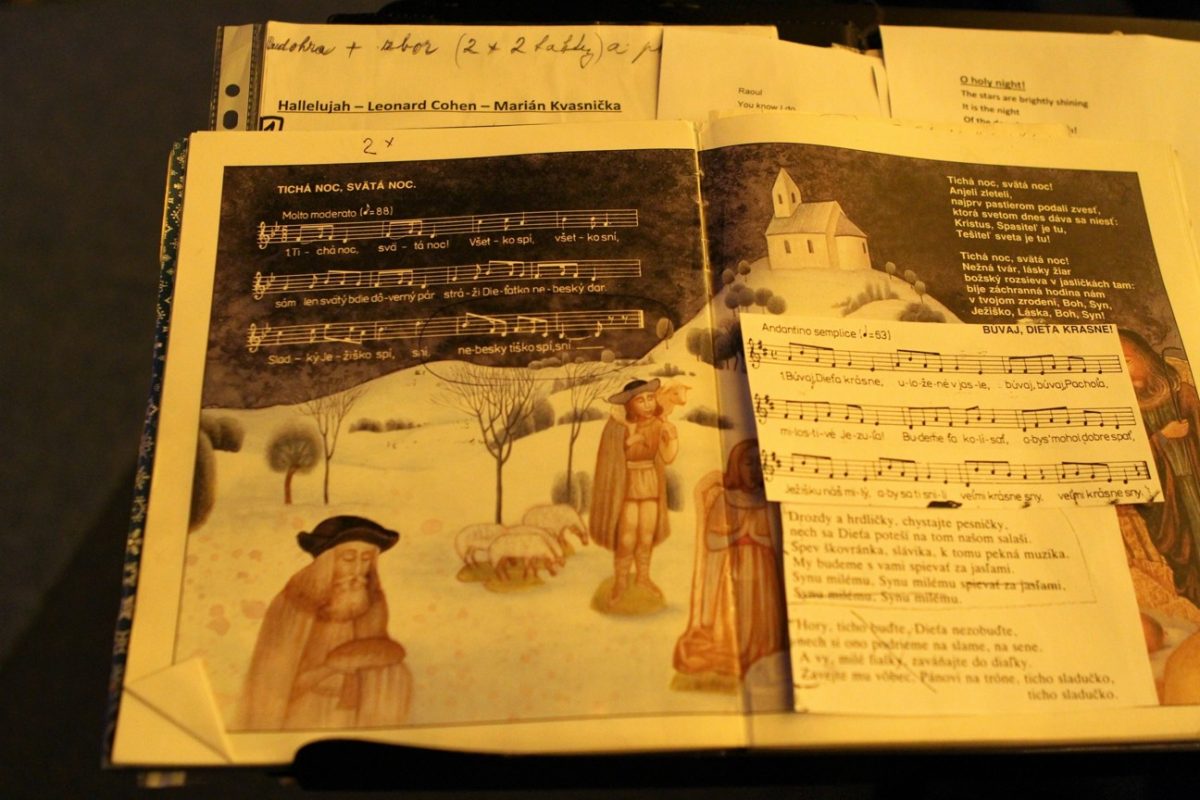 + zbor (2 x 2 takty) a
Hallelujah – Leonard Cohen – Marián Kvasnička
1
Raoul
You know I do
O holy night!
The stars are brightly shining
It is the night
Of the
2 x
TICHÁ NOC, SVÄTÁ NOC.
Molto moderato (♪=88)
1.Ti - chá noc, svä - tá noc! Všet - ko spí, všet - ko sní,
sám len svätý bdie dô-verný pár strá - ži Die-ťatko ne - beský dar.
Slad - ký Je - žiško spi, sni ne-besky tíško spi, sni
Tichá noc, svätá noc!
Anjeli zleteli,
najprv pastierom podali zvesť,
ktorá svetom dnes dáva sa niesť:
Kristus, Spasiteľ je tu,
Tešiteľ sveta je tu!
Tichá noc, svätá noc!
Nežná tvár, lásky žiar
božský rozsieva v jasličkách tam:
bije záchranná hodina nám
v tvojom zrodení, Boh, Syn,
Ježiško, Láska, Boh, Syn!
BÚVAJ, DIEŤA KRÁSNE!
Andantino semplice (♩=53)
1.Búvaj, Dieťa krásne, u-lo-že-né v jas-le, búvaj, búvaj, Pachoľa,
mi-los-ti-vé Je-zu-ľa! Budeme ťa ko-lí-sať, a-bys' mohol dobre spať,
Ježišku náš mi-lý, a-by sa ti sni-li veľmi krásne sny, veľmi krásne sny.
Drozdy a hrdličky, chystajte pesničky,
nech sa Dieťa poteší na tom našom salaši.
Spev škovránka, slávika, k tomu pekná muzika.
My budeme s vami spievať za jasľami,
Synu milému, Synu milému spievať za jasľami,
Synu milému, Synu milému.
Hory, ticho buďte, Dieťa nezobuďte,
nech si ono podrieme na slame, na sene.
A vy, milé fialky, zaváňajte do diaľky.
Zavejte mu vôbec, Pánovi na tróne, ticho sladučko,
ticho sladučko.